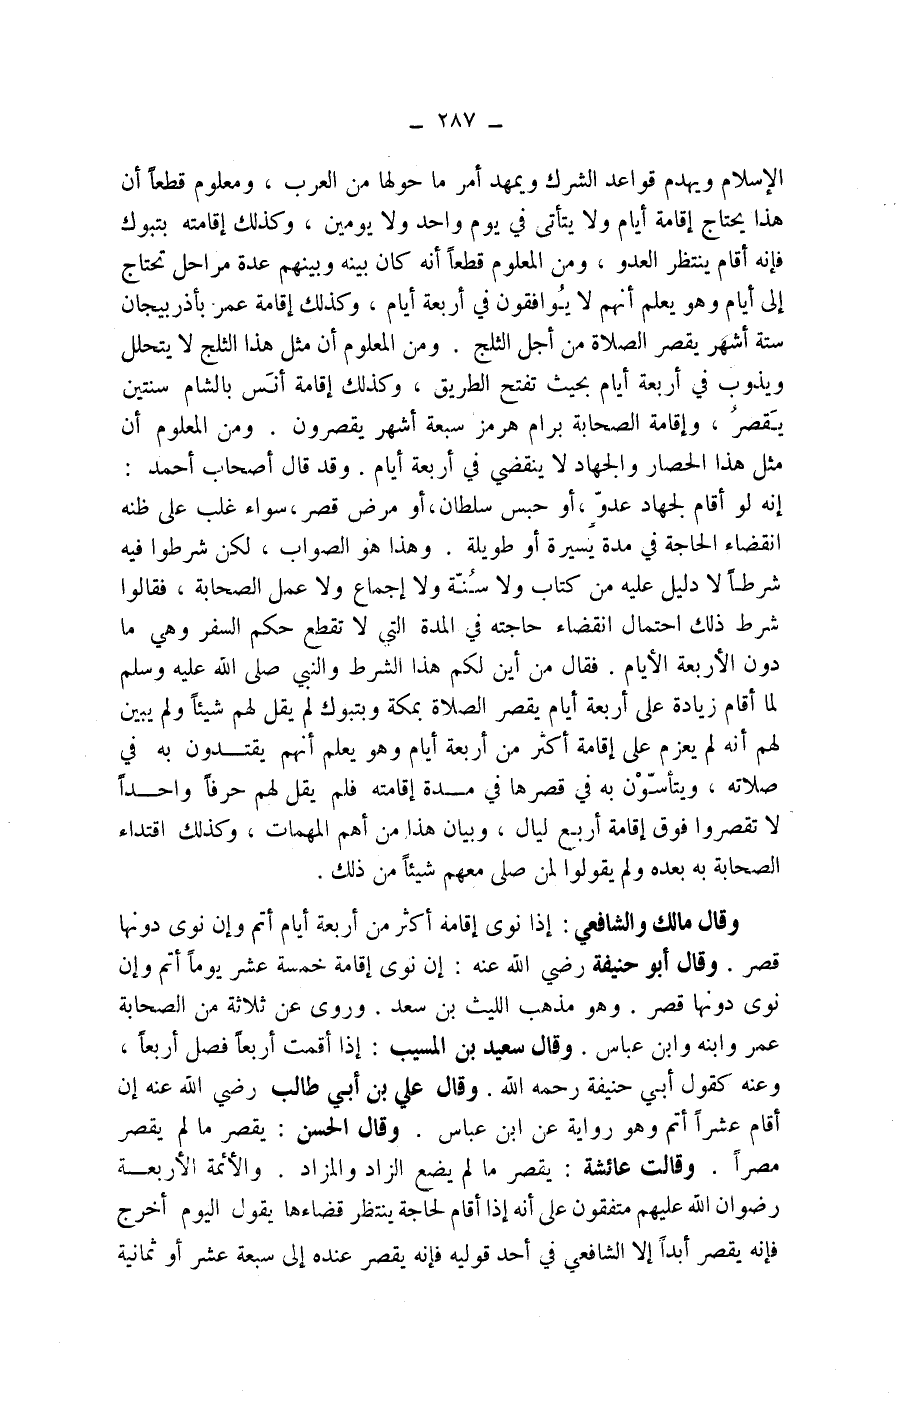 ــ ٢٨٧ ــ
الإسلام ويهدم قواعد الشرك ويمهد أمر ما حولها من العرب ، ومعلوم قطعاً أن
هذا يحتاج إقامة أيام ولا يتأتى في يوم واحد ولا يومين ، وكذلك إقامته بتبوك
فإنه أقام ينتظر العدو ، ومن المعلوم قطعاً أنه كان بينه وبينهم عدة مراحل تحتاج
إلى أيام وهو يعلم أنهم لا يُوافقون في أربعة أيام ، وكذلك إقامة عمر بأذربيجان
ستة أشهر يقصر الصلاة من أجل الثلج . ومن المعلوم أن مثل هذا الثلج لا يتحلل
ويذوب في أربعة أيام بحيث تفتح الطريق ، وكذلك إقامة أنَس بالشام سنتين
يَقصرُ ، وإقامة الصحابة برام هرمز سبعة أشهر يقصرون . ومن المعلوم أن
مثل هذا الحصار والجهاد لا ينقضي في أربعة أيام . وقد قال أصحاب أحمد :
إنه لو أقام لجهاد عدوّ ، أو حبس سلطان، أو مرض قصر ، سواء غلب على ظنه
انقضاء الحاجة في مدة يَسيرة أو طويلة . وهذا هو الصواب ، لكن شرطوا فيه
شرطاً لا دليل عليه من كتاب ولا سُنّة ولا إجماع ولا عمل الصحابة ، فقالوا
شرط ذلك احتمال انقضاء حاجته في المدة التي لا تقطع حكم السفر وهي ما
دون الأربعة الأيام . فقال من أين لكم هذا الشرط والنبي صلى الله عليه وسلم
لما أقام زيادة على أربعة أيام يقصر الصلاة بمكة وبتبوك لم يقل لهم شيئاً ولم يبين
لهم أنه لم يعزم على إقامة أكثر من أربعة أيام وهو يعلم أنهم يقتــدون به في
صلاته ، ويتأسّوْن به في قصرها في مــدة إقامته فلم يقل لهم حرفاً واحــداً
لا تقصروا فوق إقامة أربع ليال ، وبيان هذا من أهم المهمات ، وكذلك اقتداء
الصحابة به بعده ولم يقولوا لمن صلى معهم شيئاً من ذلك .
وقال مالك والشافعي : إذا نوى إقامة أكثر من أربعة أيام أتم وإن نوى دونها
قصر . وقال أبو حنيفة رضي الله عنه : إن نوى إقامة خمسة عشر يوماً أتم وإن
نوى دونها قصر . وهو مذهب الليث بن سعد . وروى عن ثلاثة من الصحابة
عمر وابنه وابن عباس . وقال سعيد بن المسيب : إذا أقمت أربعاً فصل أربعاً ،
وعنه كقول أبي حنيفة رحمه الله . وقال علي بن أبي طالب رضي الله عنه إن
أقام عشراً أتم وهو رواية عن ابن عباس . وقال الحسن : يقصر ما لم يقصر
مصراً . وقالت عائشة : يقصر ما لم يضع الزاد والمزاد . والأئمة الأربعــة
رضوان الله عليهم متفقون على أنه إذا أقام لحاجة ينتظر قضاءها يقول اليوم أخرج
فإنه يقصر أبداً إلا الشافعي في أحد قوليه فإنه يقصر عنده إلى سبعة عشر أو ثمانية